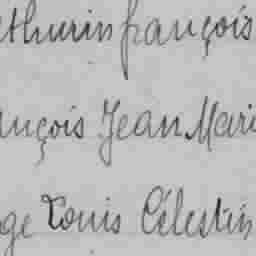 thurin françois
nçois Jean Mari
ge Louis Célestin